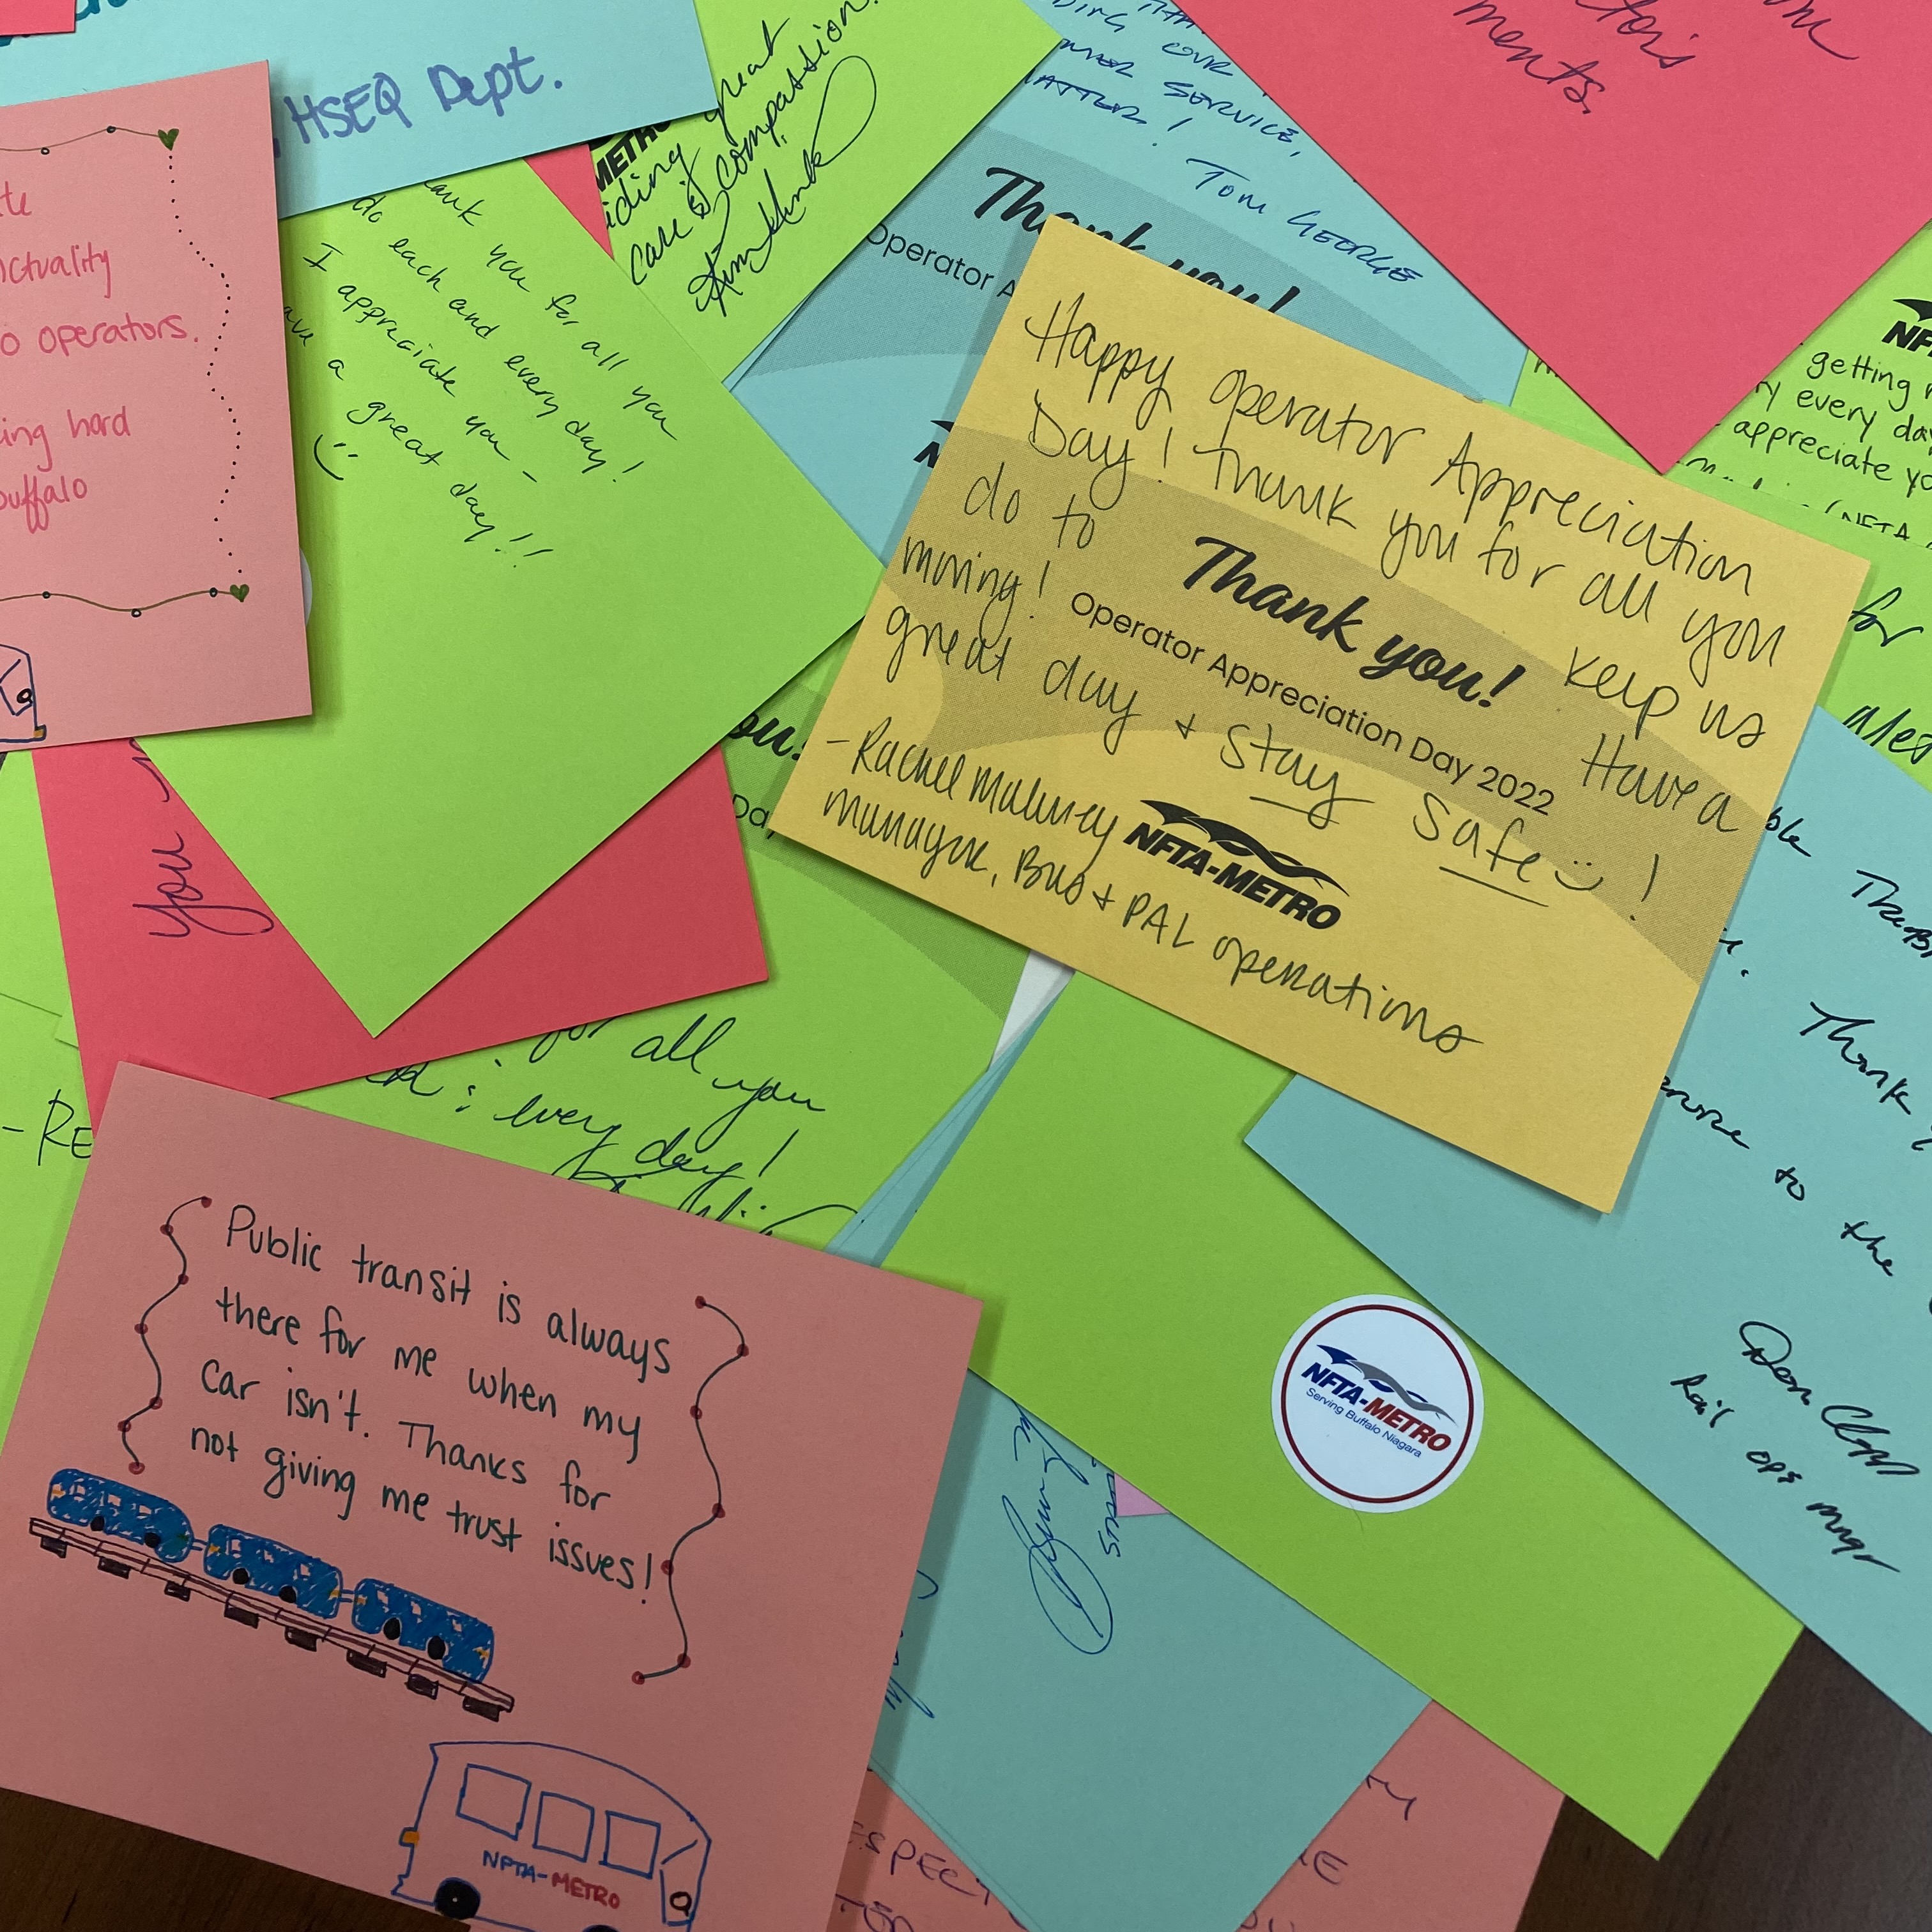 HSEQ Dept.
great
iding
care & compassion.
METRO
OUR
SERVICE,
Tom GEORGE
Thank you!
Operator A
tor's
ments.
nctuality
o operators.
ing hard
buffalo
ank you for all you
do each and every day!
I appreciate you -
ave a great day!!
Happy operator Appreciation
Day! Thank you for all you
do to keep us
moving! Have a
great day + Stay Safe !
Thank you!
Operator Appreciation Day 2022
-Rachel Maloney
manager, Bus + PAL operations
NFTA-METRO
NF
getting
every day
appreciate yo
(NFTA
for
you
ou!
Da
for all you
every day!
- RE
Thank
to the
Rail ops mngr
Public transit is always
there for me when my
car isn't. Thanks for
not giving me trust issues!
NFTA-METRO
NFTA-METRO
Serving Buffalo Niagara
ESPECT